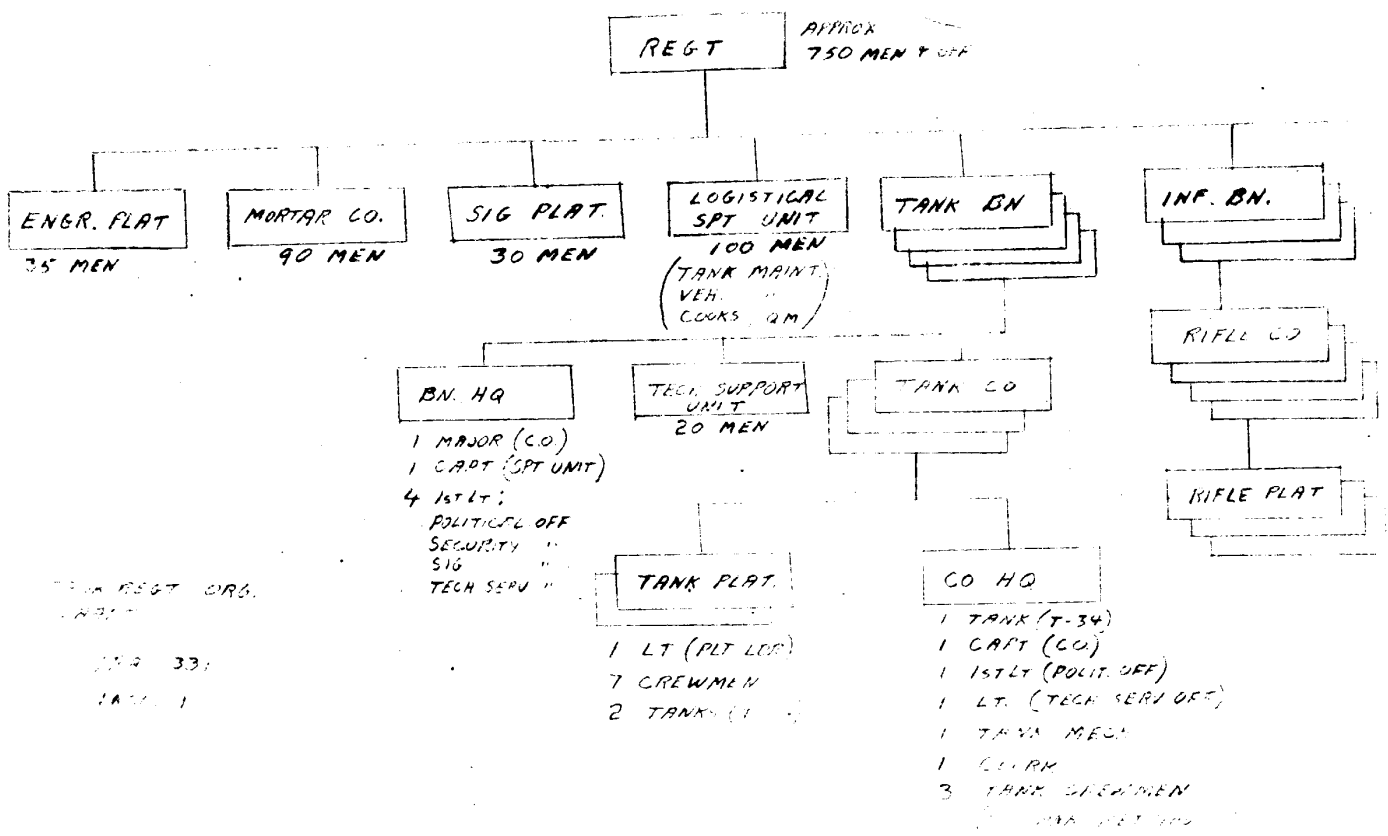 REGT
APPROX
750 MEN & OFF
ENGR. PLAT
35 MEN
MORTAR CO.
90 MEN
SIG PLAT.
30 MEN
LOGISTICAL
SPT UNIT
100 MEN
(TANK MAINT.
VEH. "
COOKS, QM)
TANK BN
INF. BN.
RIFLE CO
RIFLE PLAT
BN. HQ
1 MAJOR (C.O.)
1 CAPT (SPT UNIT)
4 1ST LT:
POLITICEL OFF
SECURITY "
SIG "
TECH SERV "
TECH SUPPORT
UNIT
20 MEN
TANK CO
TANK PLAT.
1 LT (PLT LDR)
7 CREWMEN
2 TANKS
CO HQ
1 TANK (T-34)
1 CAPT (CO.)
1 1ST LT (POLIT. OFF)
1 LT. (TECH SERV OFF)
1 TANK MECH
1 CLERK
3 TANK CREWMEN
REGT ORG.